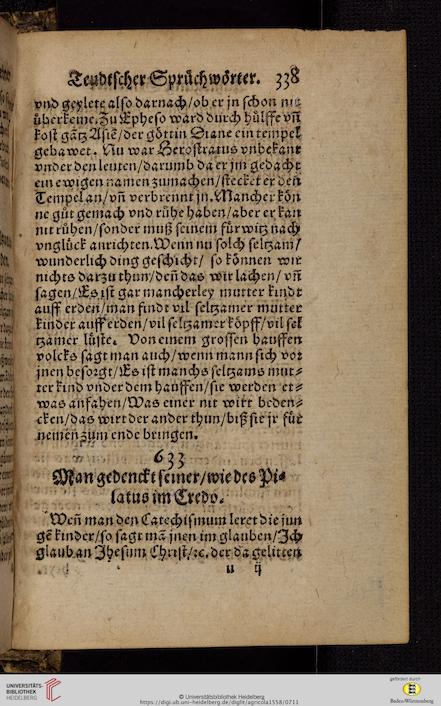 Teudtscher Sprüchwörter. 338
vnd geylete also darnach/ob er jn schon nit
überkeme. Zu Epheso ward durch hülffe vñ
kost gãtz Asiẽ/der göttin Diane ein tempel
gebawet. Nu war Herostratus vnbekant
vnder den leuten/darumb da er jm gedacht
ein ewigen namen zumachen/stecket er deñ
Tempel an/vñ verbrennt jn. Mancher kön
ne gůt gemach vnd růhe haben/aber er kan
nit růhen/sonder muß seinem fürwitz nach
vnglück anrichten. Wenn nu solch seltzam/
wunderlich ding geschicht/ so können wir
nichts darzu thun/deñ das wir lachen/ vñ
sagen/Es ist gar mancherley mutter kindt
auff erden/man findt vil seltzamer mutter
kinder auff erden/vil seltzamer köpff/vil sel
tzamer lüste. Von einem grossen hauffen
volcks sagt man auch/wenn mann sich vor
jnen besorgt/Es ist manchs seltzams mut-
ter kind vnder dem hauffen/sie werden et-
was anfahen/Was einer nit wirt beden-
cken/das wirt der ander thun/biß sie jr für
nemen zum ende bringen.
633
Man gedenckt seiner/wie des Pi-
latus im Credo.
Weñ man den Catechismum leret die jun
gẽ kinder/so sagt mã jnen im glauben/Ich
glaub an Jhesum Christ/ꝛc. der da gelitten
u ij
UNIVERSITÄTS-
BIBLIOTHEK
HEIDELBERG
© Universitätsbibliothek Heidelberg
https://digi.ub.uni-heidelberg.de/diglit/agricola1558/0711
gefördert durch
Baden-Württemberg